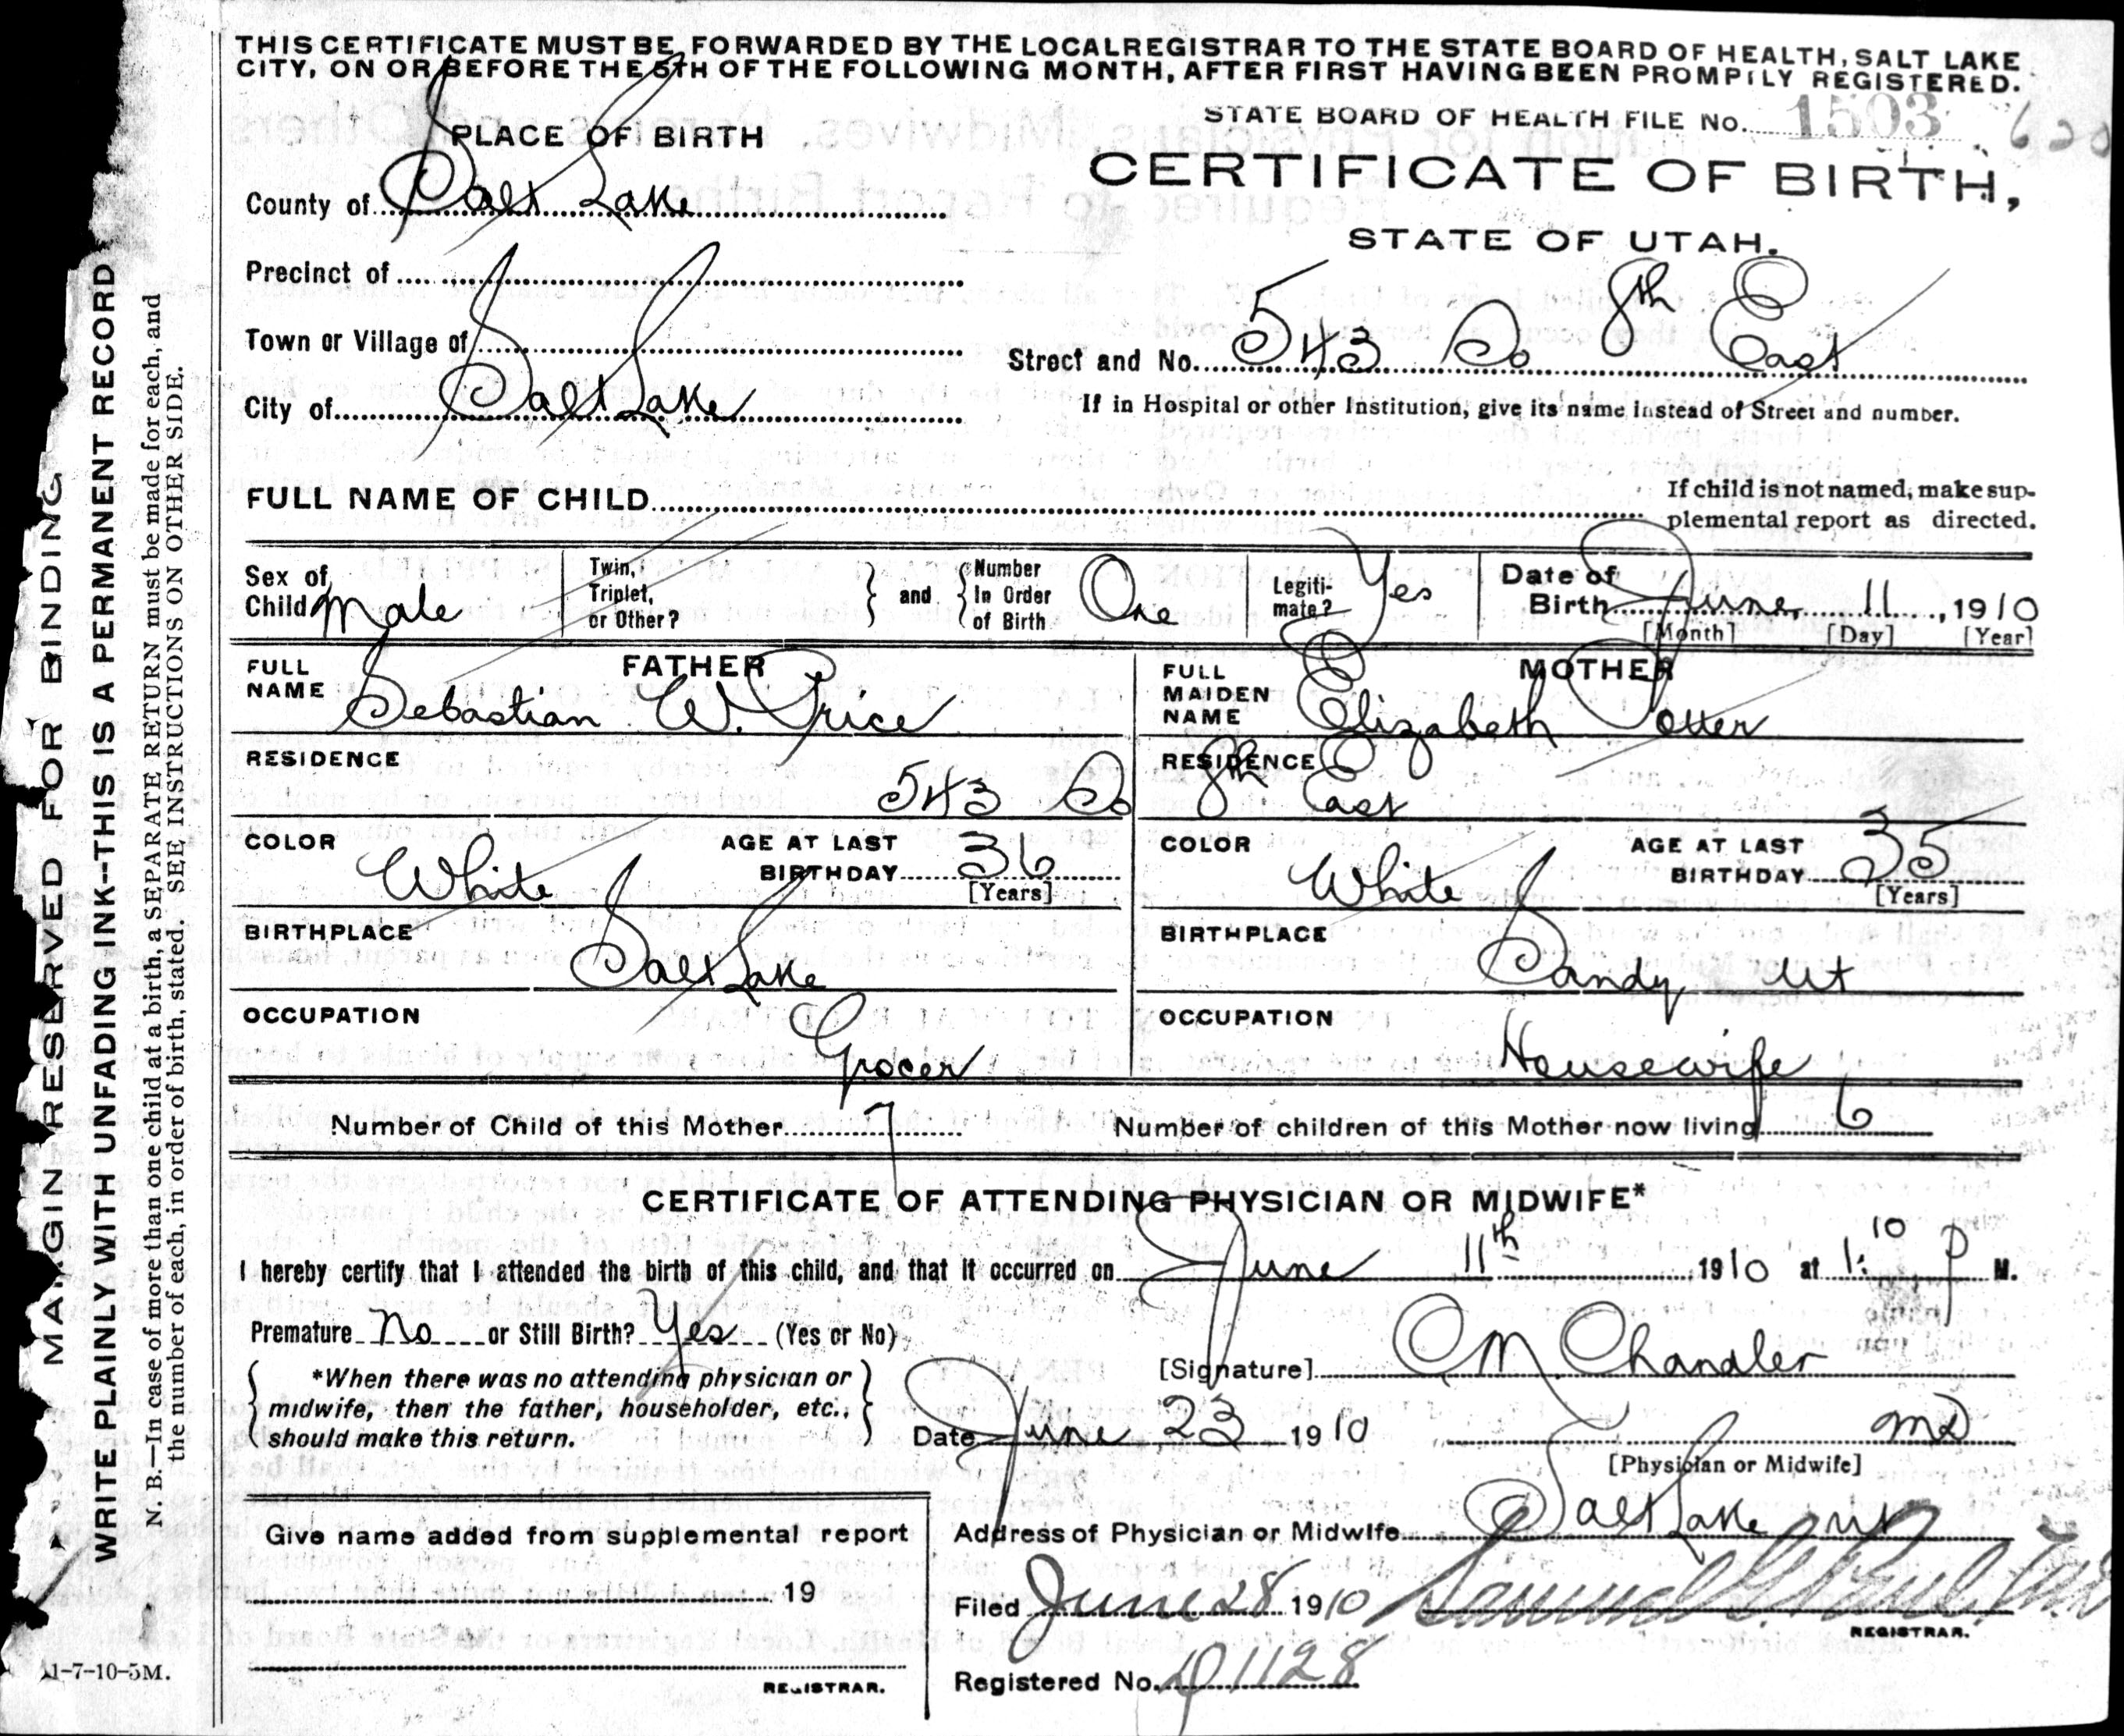 THIS CERTIFICATE MUST BE FORWARDED BY THE LOCAL REGISTRAR TO THE STATE BOARD OF HEALTH, SALT LAKE
CITY, ON OR BEFORE THE 5TH OF THE FOLLOWING MONTH, AFTER FIRST HAVING BEEN PROMPTLY REGISTERED.
STATE BOARD OF HEALTH FILE No. 1503 620
PLACE OF BIRTH
CERTIFICATE OF BIRTH,
County of Salt Lake
STATE OF UTAH.
Precinct of
Town or Village of
Street and No. 543 So 8th East
City of Salt Lake
If in Hospital or other Institution, give its name instead of Street and number.
FULL NAME OF CHILD
If child is not named, make sup-
plemental report as directed.
Sex of Child Male
Twin, Triplet, or Other?
and
Number In Order of Birth One
Legiti-mate? Yes
Date of Birth June 11, 1910
[Month] [Day] [Year]
FATHER
FULL NAME Sebastian W. Price
MOTHER
FULL MAIDEN NAME Elizabeth Potter
RESIDENCE 543 So
RESIDENCE 8th East
COLOR White
AGE AT LAST BIRTHDAY 36
[Years]
COLOR White
AGE AT LAST BIRTHDAY 35
[Years]
BIRTHPLACE Salt Lake
BIRTHPLACE Sandy Ut
OCCUPATION Grocer
OCCUPATION Housewife
Number of Child of this Mother 7
Number of children of this Mother now living 6
CERTIFICATE OF ATTENDING PHYSICIAN OR MIDWIFE*
I hereby certify that I attended the birth of this child, and that it occurred on June 11th, 1910 at 1:10 P M.
Premature No or Still Birth? Yes (Yes or No)
[Signature] C M Chandler
*When there was no attending physician or
midwife, then the father, householder, etc.,
should make this return.
Date June 23 1910
MD
[Physician or Midwife]
Give name added from supplemental report
Address of Physician or Midwife Salt Lake
19
Filed June 28 1910 Samuel G. Paul
REGISTRAR.
Registered No. 1128
REGISTRAR.
1-7-10-5M.
MARGIN RESERVED FOR BINDING
WRITE PLAINLY WITH UNFADING INK--THIS IS A PERMANENT RECORD
N. B.—In case of more than one child at a birth, a SEPARATE RETURN must be made for each, and
the number of each, in order of birth, stated. SEE INSTRUCTIONS ON OTHER SIDE.